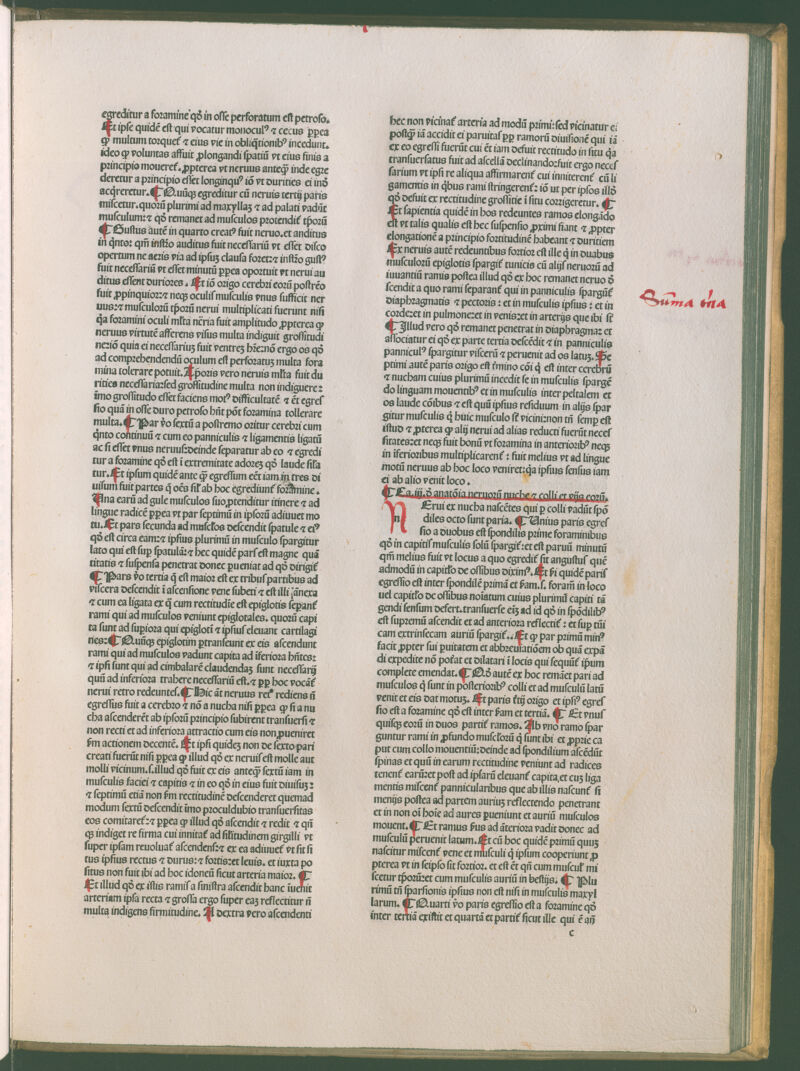 egreditur a foramine qd̛ in osse perforatum est petroso.
Et ipse quidē est qui vocatur monoculꝰ ⁊ cecus ꝓpea
ꝙ multum torquet̛ ⁊ eius vie in obliq̄tionibꝰ incedunt.
ideo ꝙ voluntas affuit ꝓlongandi spatiū vt eius finis a
principio moueret̛. ꝓpterea vt neruus anteq̄ꝫ inde egre
deretur a principio esset longinquꝰ iō vt durities ei inō
acq̄reretur. Quūqꝫ egreditur cū neruis tertij paris
miscetur. quorū plurimi ad maxyllaꝫ ⁊ ad palati vadūt
musculum: ⁊ qd̛ remanet ad musculos protendit̛ tp̄orū
Gustus autē in quarto creatꝰ fuit neruo. et auditus
in q̄nto: qm̄ inst̄o auditus fuit necessariū vt esset disco
opertum ne aeris via ad ipsuꝫ clausa foret: ⁊ inst̄o gustꝰ
fuit necessariū vt esset minutū ꝓpea oportuit vt nerui au
ditus essent duriores. Et iō origo cerebri eorū postr̄o
fuit ꝓpinquior: ⁊ neqꝫ oculi musculis vnus sufficit ner
uus: ⁊ musculorū tp̄orū nerui multiplicati fuerunt nisi
q̄a foramini oculi mlt̄a nc̄ria fuit amplitudo ꝓpterea ꝙ
neruus virtutē afferens visus multa indiguit grossitudi
ne: iō quia ei necessariuꝫ fuit ventreꝫ hr̄e: nō ergo os qd̛
ad comprehendendū oculum est perforatuꝫ multa fora
mina tolerare potuit. Tp̄oris vero neruis mlt̄a fuit du
rities necessaria: sed grossitudine multa non indiguere:
imo grossitudo esset faciens motꝰ difficultatē ⁊ ēt egres
sio quā in osse duro petroso hn̄t pōt foramina tollerare
multa. Par v̄o sextū a postremo oritur cerebri cum
q̄nto continuū ⁊ cum eo panniculis ⁊ ligamentis ligatū
ac si esset vnus neruus: deinde separatur ab eo ⁊ egredi
tur a foramine qd̛ est i extremitate adoreꝫ qd̛ laude fissa
tur. Et ipsum quidē ante q̄ꝫ egressium eēt iam in tres di
uisum fuit partes q̄ oēs sil̛ ab hoc egrediunt̛ foramine.
Una earū ad gule musculos suo ꝓtenditur itinere ⁊ ad
lingue radicē ꝓpea vt par septimū in ipsorū adiuuet mo
tu. Et pars secunda ad muscl̛os descendit spatule ⁊ eiꝰ
qd̛ est circa eam: ⁊ ipsius plurimū in musculo spargitur
lato qui est sup̄ spatulā: ⁊ hec quidē pars est magne quā
titatis ⁊ suspensa penetrat donec pueniat ad qd̛ dirigit̛
Pars v̄o tertia q̄ est maior est ex tribus partibus ad
viscera descendit i ascensione vene subeti ⁊ est illi ānexa
⁊ cum ea ligata ex q̄ cum rectitudīe est epiglotis separant̛
rami qui ad musculos veniunt epiglotales. quorū capi
ta sunt ad supiora qui epiglotī ⁊ ipsius eleuant cartilagi
nes: Quūqꝫ epiglotim ꝑtranseunt ex eis ascendunt
rami qui ad musculos vadunt capita ad īferiora hn̄tes:
⁊ ipsi sunt qui ad cimbalarē claudendaꝫ sunt necessarij
quū ad inferiora trahere necessariū est. ⁊ ꝓp̄ hoc vocāt̛
nerui retro redeuntes. Hic āt neruus ret̛ rediens nō
egressus fuit a cerebro ⁊ nō a nucha nisi ꝓpea ꝙ si a nu
cha ascenderēt ab ipsorū principio subirent transuersi ⁊
non recti et ad inferiora attractio cum eis non ꝓueniret
ẜm actionem decentē. Et ipsi quideꝫ non de sexto pari
creati fuerūt nisi ꝓpea ꝙ illud qd̛ ex neruis est molle aut
molli vicinum. s. illud qd̛ fuit ex eis anteq̄ꝫ sextū iam in
musculis faciei ⁊ capitis ⁊ in eo qd̛ in eius fuit diuisuꝫ:
⁊ septimū etiā non ẜm rectitudinē descenderet quemad
modum sextū descendit imo proculdubio transuersitas
eos comitaret̛: ⁊ ꝓpea ꝙ illud qd̛ ascendit ⁊ redit ⁊ qn̄
qꝫ indiget re firma cui innitat̛ ad sil̛itudinem girgilli vt
super ipsam reuoluat̛ ascendens: ⁊ ex ea adiuuet̛ vt sit si
tus ipsius rectus ⁊ durus: ⁊ fortis: et leuis. et iuxta po
situs non fuit ibi ad hoc idoneū sicut arteria maior.
Et illud qd̛ ex istis ramis a sinistra ascendit hanc īuenit
arteriam ipsa recta ⁊ grossa ergo super eaꝫ reflectitur nō
multa indigens firmitudine. Ad dextra vero ascendenti
hec non vicinat̛ arteria ad modū primi: sed vicinatur ei
postq̄ꝫ iā accidit ei paruitas ꝓp̄ ramorū diuisionē qui iā
ex eo egressi fuerūt cui ēt iam defuit rectitudo in situ q̄a
transuersatus fuit ad ascellā declinando: fuit ergo neces
sarium vt ipsi re aliqua affirmarent̛ cui inniterent̛ cū li
gamentis in q̄bus rami stringerent̛: iō ut per ipsos illd̛
qd̛ defuit ex rectitudine grossitie ī situ corrigeretur.
Et sapientia quidē in hos redeuntes ramos elongādo
est vt talis qualis est hec suspensio ꝓximi fiant ⁊ ꝓpter
elongationē a principio fortitudinē habeant ⁊ duritiem
Ex neruis autē redeuntibus fortior est ille q̄ in duabus
musculorū epiglotis spargit̛ tunicis cū alijs neruorū ad
iuuantiū ramis postea illud qd̛ ex hoc remanet neruo d̄
scendit a quo rami separant̛ qui in panniculis spargūt̛
diaphragmatis ⁊ pectoris: et in musculis ipsius: et in
corde: et in pulmone: et in venis: et in arterijs que ibi st̄
Illud vero qd̛ remanet penetrat in diaphragma: et
associatur ei qd̛ ex parte tertia descēdit ⁊ in panniculis
panniculꝰ spargitur viscerū ⁊ peruenit ad os latuꝫ. De
primi autē paris origo est t̄mino cōi q̄ est inter cerebrū
⁊ nucham cuius plurimū incedit se in musculis spargē
do linguam mouentibꝰ et in musculis inter peltalem et
os laude cōibus ⁊ est quū ipsius residuum in alijs spar
gitur musculis q̄ huic musculo st̄ vicini: non tn̄ semp̄ est
istud ⁊ ꝓpterea ꝙ alij nerui ad alias reducti fuerūt neces
sitates: et neqꝫ fuit bonū vt foramina in anterioribꝰ neqꝫ
in īferioribus multiplicarent̛: fuit melius vt ad lingue
motū neruus ab hoc loco veniret: q̄a ipsius sensus iam
ei ab alio venit loco.
Ca. iij. d̄ anatōia neruorū nuche ⁊ colli et vijs eorū.
Nerui ex nucha nascētes qui p̄ colli vadūt spō
diles octo sunt paria. Unius paris egres
sio a duobus est spondilis prime foraminibus
qd̛ in capitis musculis solū spargit̛: et est paruū minutū
qm̄ melius fuit vt locus a quo egredit̛ sit angustus quē
admodū in capitl̛o de ossibus diximꝰ. Et s̄i quidē paris
egressio est inter spondilē primā et s̄am. s. foram̄ in loco
uel capitl̛o de ossibus noīatum cuius plurimū capiti tā
gendi sensum defert. transuerse eiꝫ ad id qd̛ in spōdilibꝰ
est supremū ascendit et ad anteriora reflectit̛: et sup̄ tūi
cam extrinsecam auriū spargit̛. Et ꝙ par primū minꝰ
facit ꝓpter sui puitatem et abbreuiatiōem ob quā expā
di expedite nō pot̄at et dilatari ī locis qui sequūt̛ ip̄um
complete emendat. Qd̛ autē ex hoc remāet pari ad
musculos q̄ sunt in posterioribꝰ colli et ad musculū latū
venit et eis dat motuꝫ. Et paris t̄tij origo et ipsiꝰ egres
sio est a foramine qd̛ est inter s̄am et tertiā. Et vnus
quisqꝫ eorū in duos partit̛ ramos. Ab vno ramo spar
guntur rami in ꝓfundo muscl̛orū q̄ sunt ibi et ꝓprie ca
put cum collo mouentiū: deinde ad spondilium ascēdūt
spinas et quū in earum rectitudine veniunt ad radices
tenent̛ earū: et post ad ipsarū eleuant̛ capita. et cuꝫ liga
mentis miscent̛ panniculuribus que ab illis nascunt̛ si
menijs postea ad partem aurius reflectendo penetrant
et in non oī hoīe ad aures pueniunt et auriū musculos
mouent. Et ramus s̄us ad āteriora vadit donec ad
musculū peruenit latum. Et cū hoc quidē primū quuꝫ
nascitur miscent̛ vene et musculi q̄ ipsum cooperiunt ꝓ
pterea vt in seipso sit fortior. et est ēt qn̄ cum muscul̛ mi
scetur tp̄orū: et cum musculis auriū in bestijs. Plu
rimū tn̄ sparsionis ipsius non est nisi in musculis maxyl
larum. Quarti v̄o paris egressio est a foramine qd̛
inter tertiā existit et quartā et partit̛ sicut ille qui ē añ
c
Sūma